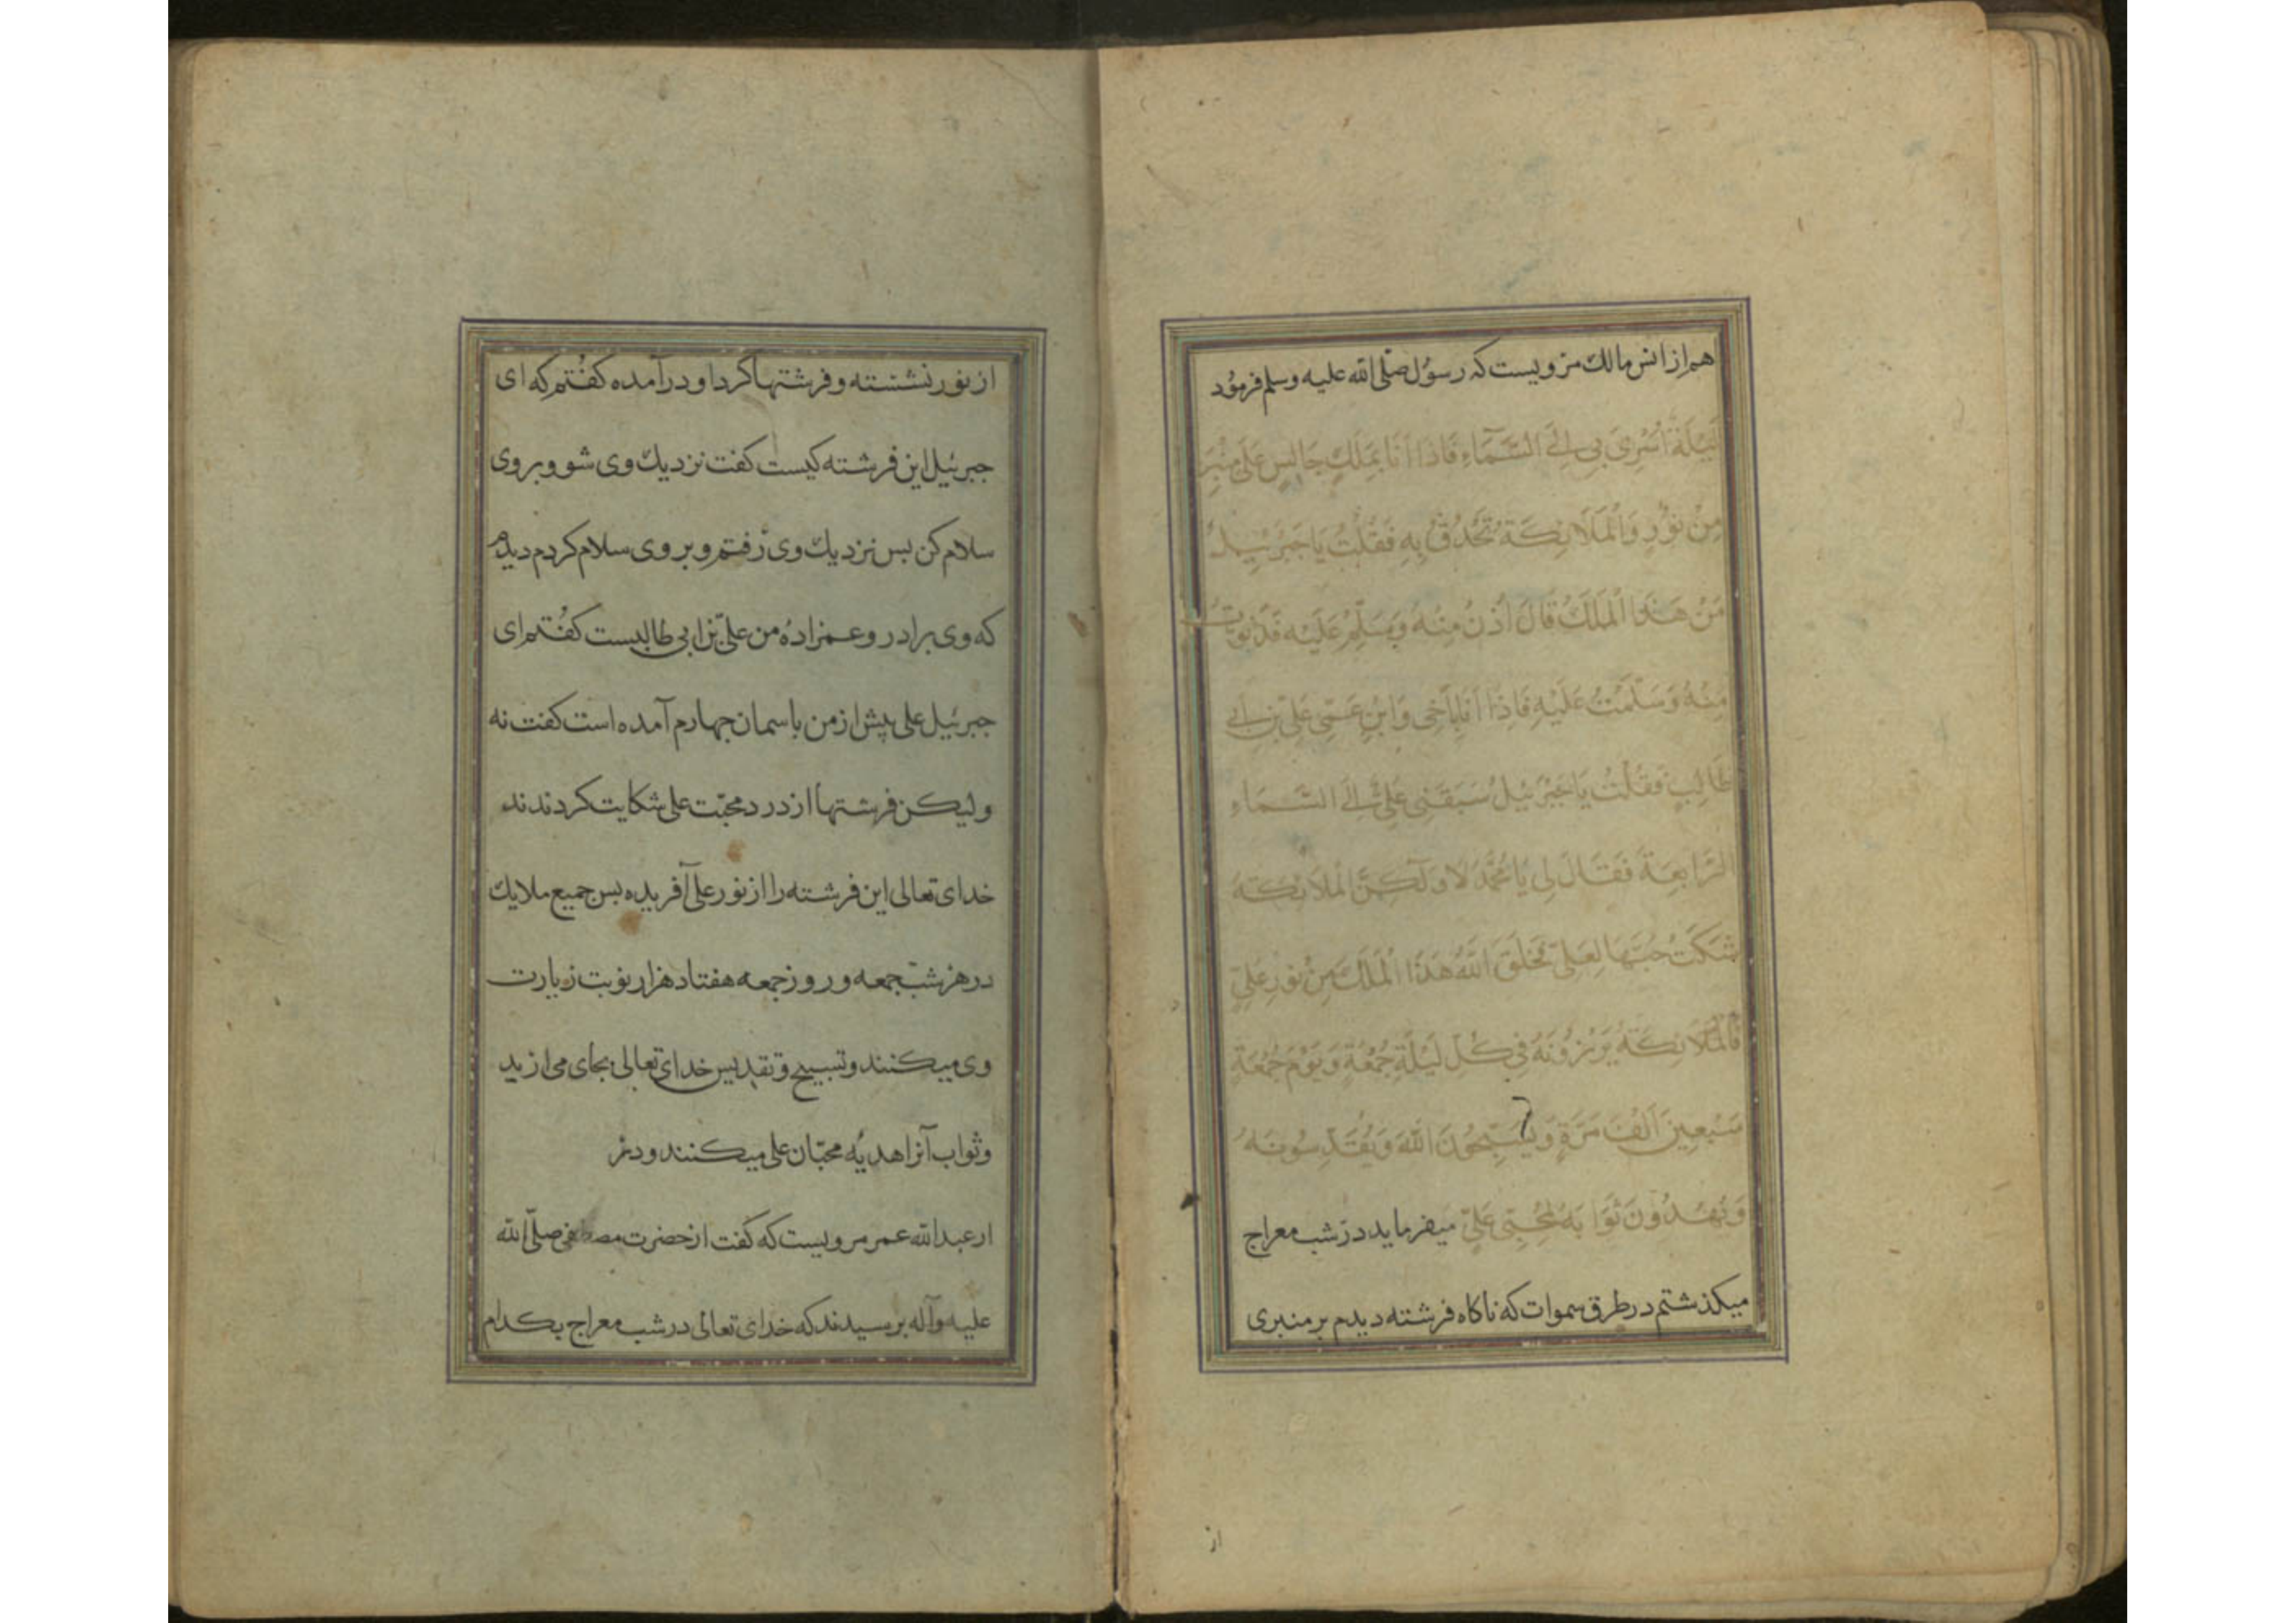 هم از انس مالك مرویست که رسول صلی الله علیه وسلم فرمود
لَیْلَةَ اُسْرِیَ بی اِلَی السَّمَآءِ فَاِذَا اَنَا بِمَلَكٍ جَالِسٍ عَلَی مِنْبَرٍ
مِنْ نُوْرٍ وَالْمَلَائِکَةُ تَحْدُقُ بِهِ فَقُلْتُ یَا جَبْرَئِیلُ
مَنْ هَذَا الْمَلَكُ قَالَ اُدْنُ مِنْهُ وَسَلِّمْ عَلَیْهِ فَدَنَوْتُ
مِنْهُ وَسَلَّمْتُ عَلَیْهِ فَاِذَا اَنَا بِاَخِی وَابْنِ عَمّی عَلِیّ بْنِ اَبی
طَالِبٍ فَقُلْتُ یَا جَبْرَئِیلُ سَبَقَنِی عَلِیٌّ اِلَی السَّمَاءِ
الرَّابِعَةِ فَقَالَ لِی یَا مُحَمَّدُ لَا وَلَکِنَّ الْمَلَائِکَةَ
شَکَتْ حُبَّهَا لِعَلِیٍّ فَخَلَقَ اللّٰهُ هَذَا الْمَلَكَ مِنْ نُوْرِ عَلِیٍّ
فَالْمَلَائِکَةُ یَزُرُوْنَهُ فِی کُلِّ لَیْلَةِ جُمُعَةٍ وَیَوْمَ جُمُعَةٍ
سَبْعِینَ اَلْفَ مَرَّةٍ وَیُسَبِّحُوْنَ اللّٰهَ وَیُقَدِّسُونَهُ
وَیُهْدُوْنَ ثَوَابَهُ لِمُحِبّی عَلِیٍّ میفرماید در شب معراج
میکذشتم در طرق سموات که ناکاه فرشته دیدم بر منبری
از
از نور نشسته و فرشتها کرد او در آمده کفتم که ای
جبرئیل این فرشته کیست کفت نزدیك وی شو و بر وی
سلام کن بس نزدیك وی رفتم و بر وی سلام کردم دیدم
که وی برادر و عمزادهٔ من علیّ بن ابی طالبست کفتم ای
جبرئیل علی پیش از من باسمان جهارم آمده است کفت نه
ولیکن فرشتها از درد محبّت علی شکایت کردند
خدای تعالی این فرشته را از نور علی آفریده بس جمیع ملایك
در هر شب جمعه و روز جمعه هفتاد هزار نوبت زیارت
وی میکنند و تسبیح و تقدیس خدای تعالی بجای می
و ثواب آنرا هدیهٔ محبّان علی میکنند
از عبدالله عمر مرویست که کفت از حضرت مصطفی صلّی الله
علیه وآله برسیدند که خدای تعالی در شب معراج بکدام